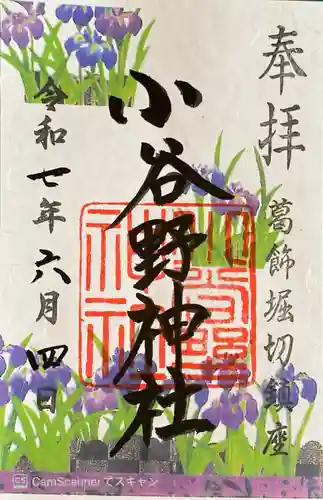 奉拝
葛飾堀切鎮座
小谷野神社
令和七年六月四日
CS CamScanner でスキャン